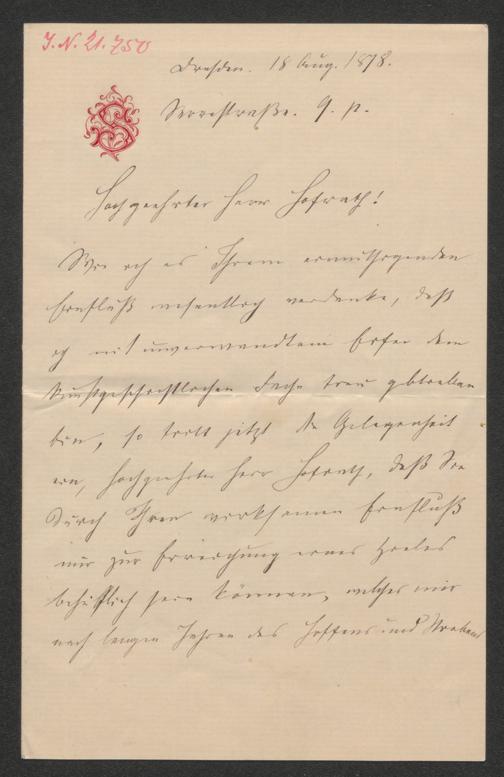 J. N. 21.750
Dresden. 18 Aug. 1878.
S
straße. 9. p.
Hochgeehrter Herr Hofrath!
Wie ich es Ihrem ermuthigenden
Einfluß wesentlich verdanke, daß
ich mit unverwandtem Eifer dem
kunstgeschichtlichen Fache treu geblieben
bin, so tritt jetzt die Gelegenheit
ein, hochgeehrter Herr Hofrath, daß Sie
durch Ihren wirksamen Einfluß
mir zur Erreichung eines Zieles
behülflich sein können, welches mir
nach langen Jahren des Hoffens und Strebens